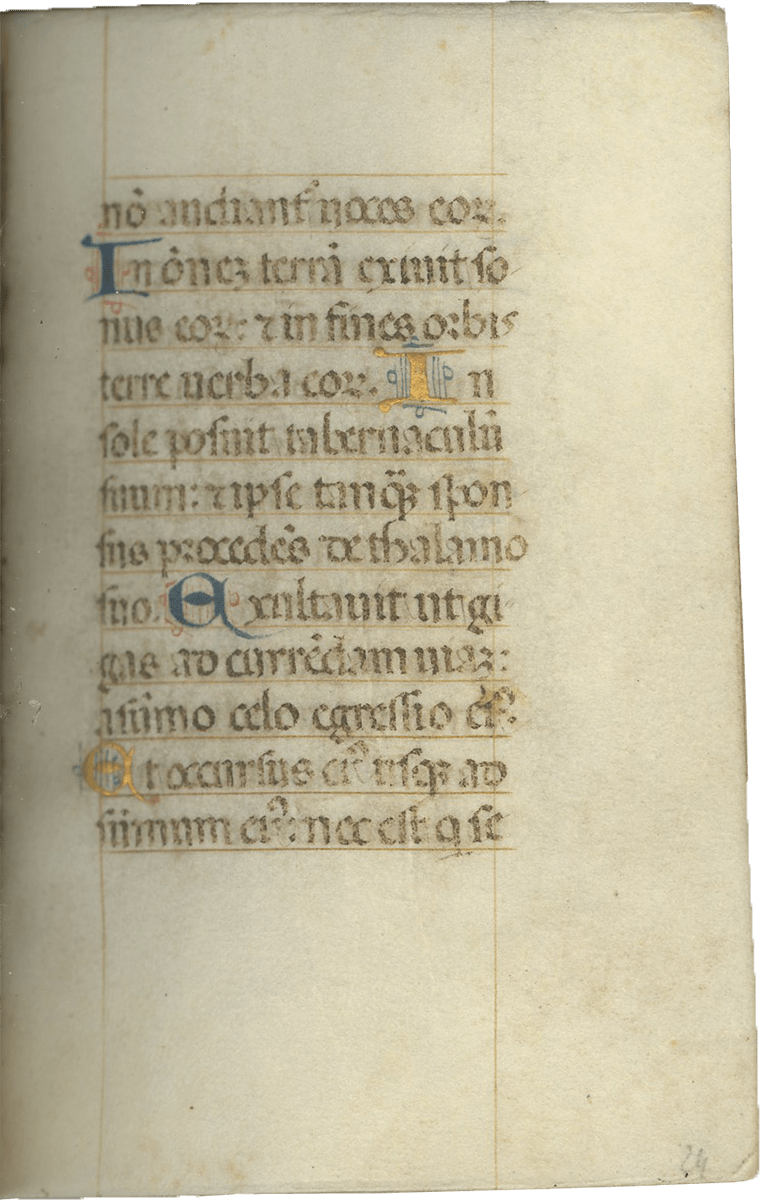 nō audiant᷑ uoces eoꝝ.
In ōneꝫ terrā exiuit so
nus eoꝝ: ⁊ in fines orbis
terre uerba eoꝝ. In
sole posuit tabernaculū
suum: ⁊ ipse tanq̄ꝫ spon
sus procedēs de thalamo
suo. Exultauit ut gi
gas ad currēdam uiaꝫ:
a sūmo celo egressio eiꝰ.
Et occursus eiꝰ usqꝫ ad
summum eiꝰ: nec est q se
24